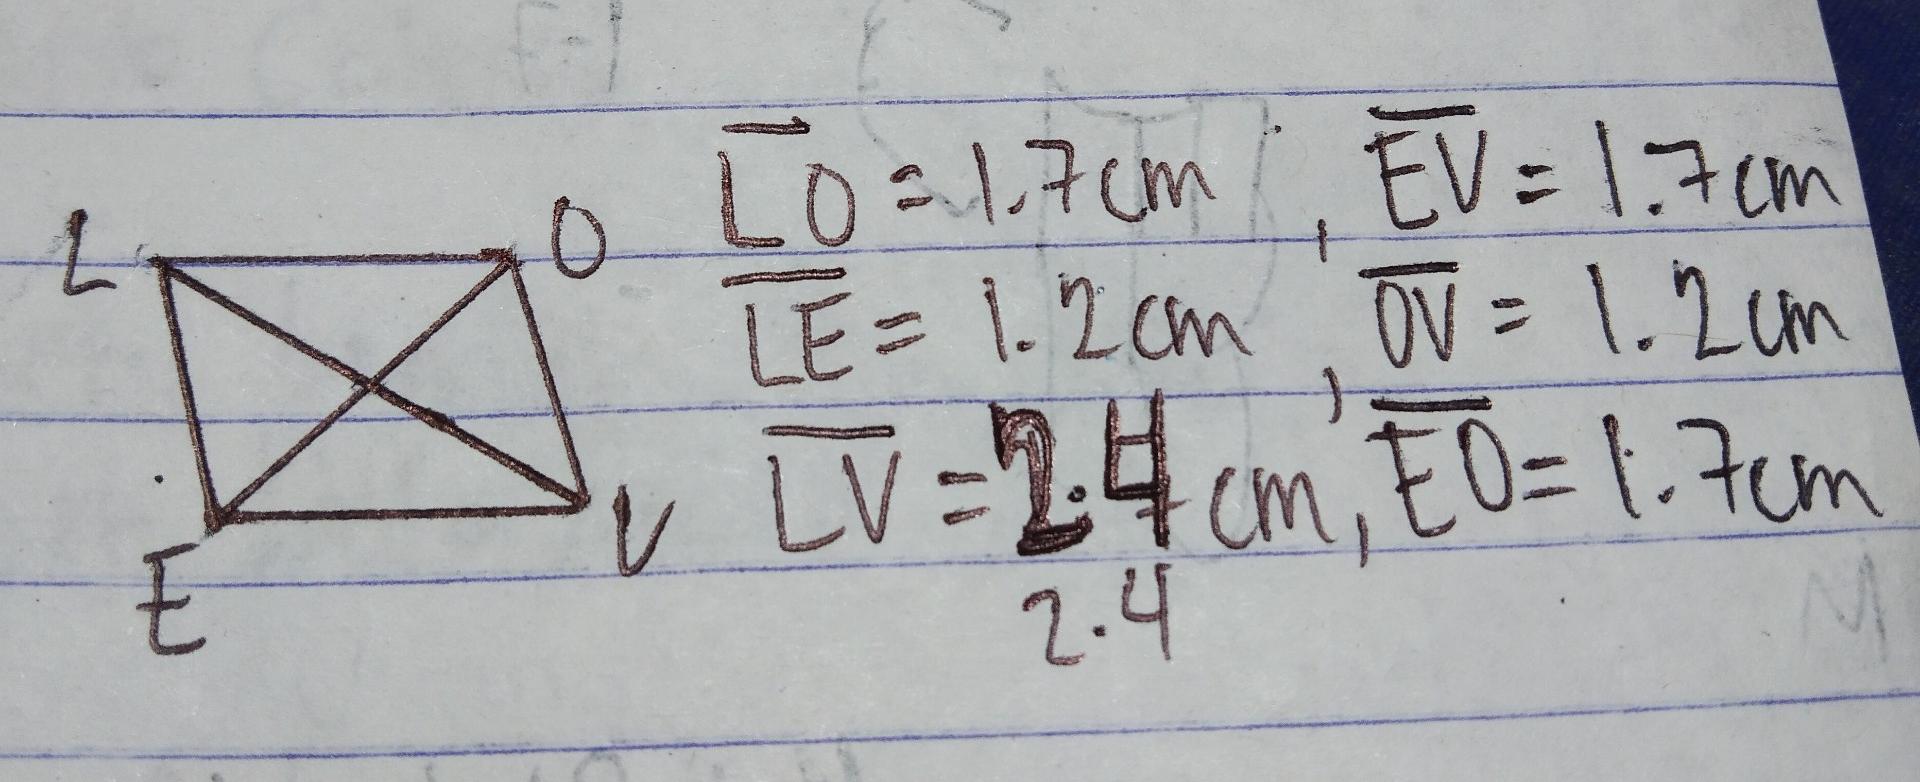 L O
LO = 1.7cm , EV = 1.7cm
LE = 1.2cm , OV = 1.2cm
LV = 2.4 cm, EO = 1.7cm
E V
2.4